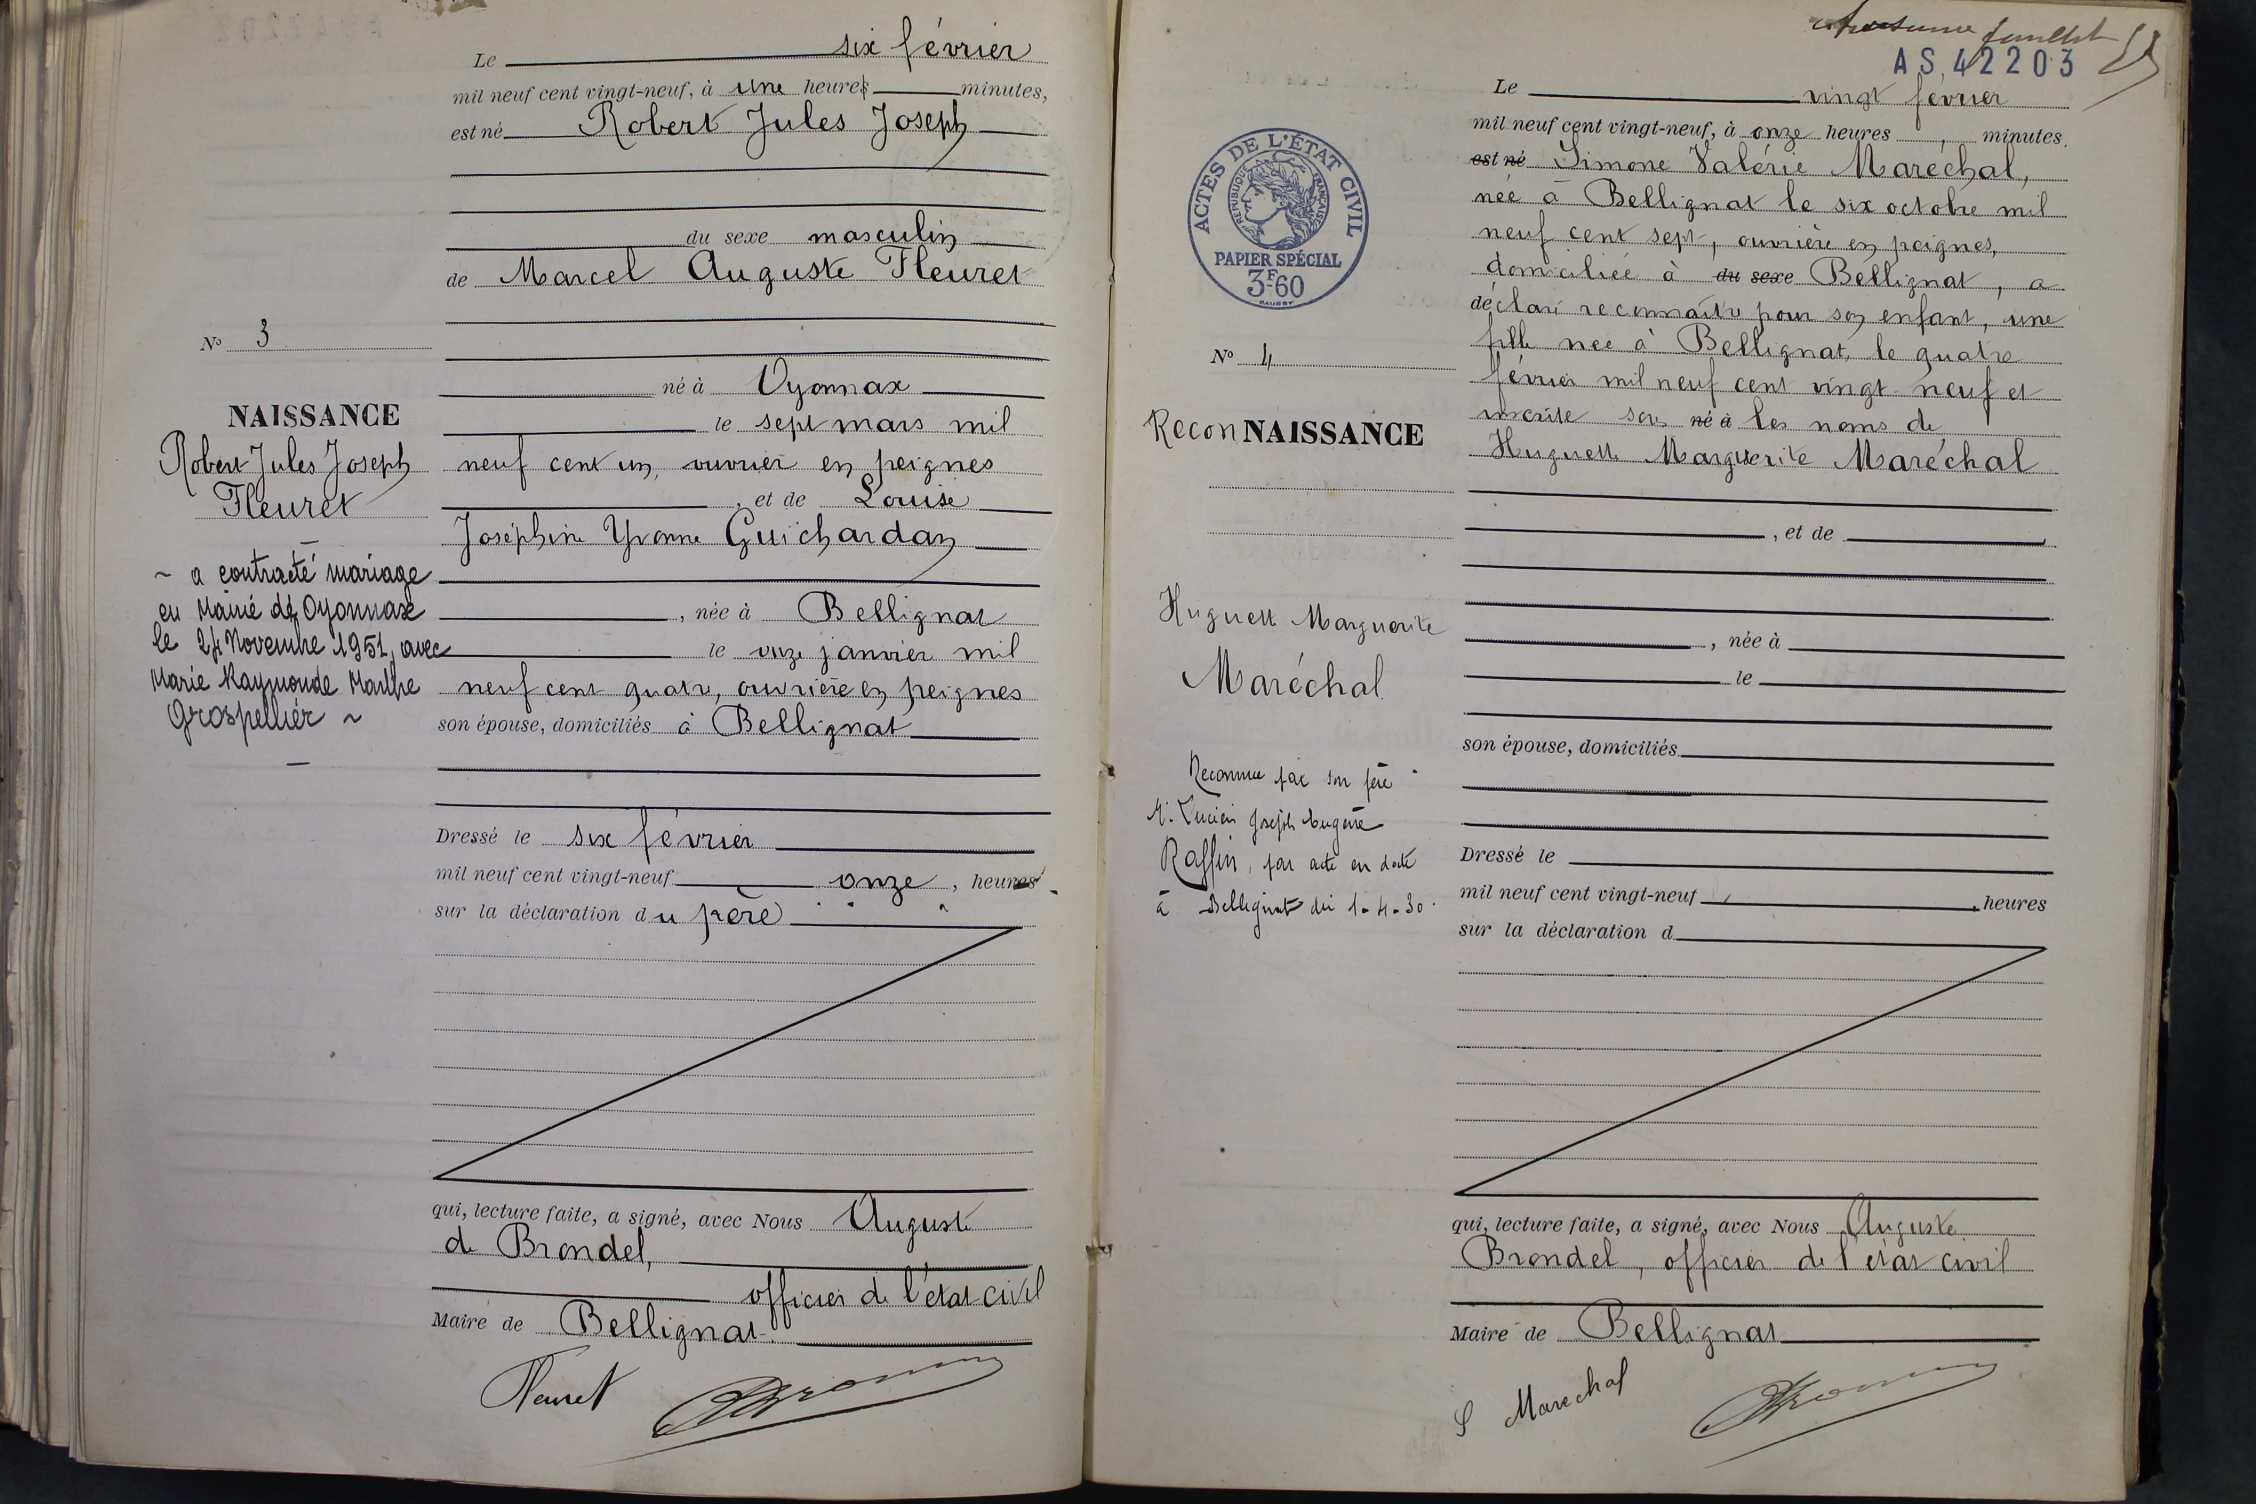 Le six février
mil neuf cent vingt-neuf, à une heures minutes,
est né Robert Jules Joseph
du sexe masculin
de Marcel Auguste Fleuret
né à Oyonnax
le sept mars mil
neuf cent un, ouvrier en peignes
, et de Louise
Joséphine Yvonne Guichardan
, née à Bellignat
le onze janvier mil
neuf cent quatre, ouvrière en peignes
son épouse, domiciliés à Bellignat
Dressé le six février
mil neuf cent vingt-neuf onze, heures
sur la déclaration du père
qui, lecture faite, a signé, avec Nous Auguste
de Brondel,
officier de l'état civil
Maire de Bellignat
Fleuret
No 3
NAISSANCE
Robert Jules Joseph
Fleuret
~ a contracté mariage
en Mairie de Oyonnax
le 24 Novembre 1951, avec
Marie Raymonde Marthe
Grospellier ~
feuillet
AS,42203
Le vingt février
mil neuf cent vingt-neuf, à onze heures , minutes.
est né Simone Valérie Maréchal,
née à Bellignat le six octobre mil
neuf cent sept, ouvrière en peignes,
domiciliée à du sexe Bellignat, a
déclaré reconnaître pour son enfant, une
fille née à Bellignat, le quatre
février mil neuf cent vingt neuf et
inscrite sous né à les noms de
Huguette Marguerite Maréchal
, et de
, née à
le
son épouse, domiciliés
Dressé le
mil neuf cent vingt-neuf , heures
sur la déclaration d
qui, lecture faite, a signé, avec Nous Auguste
Brondel, officier de l'état civil
Maire de Bellignat
S Maréchal
ACTES DE L'ÉTAT CIVIL
RÉPUBLIQUE FRANÇAISE
PAPIER SPÉCIAL
3F60
No 4
ReconNAISSANCE
Huguette Marguerite
Maréchal
Reconnue par son père
M. Lucien Joseph Eugène
Raffin, par acte en date
à Bellignat du 1-4-30.